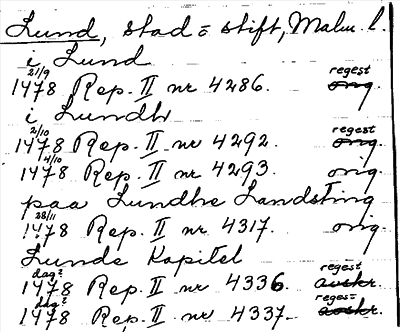 Lund, stad = stift, Malm. l.
i Lund
21/9 regest
1478 Rep. II nr 4286. orig.
i Lundh
2/10 regest
1478 Rep. II nr 4292. orig.
4/10
1478 Rep. II nr 4293. orig.
paa Lundhe Landsting
28/11
1478 Rep. II nr 4317. orig.
Lunde Kapitel
dag? regest
1478 Rep. II nr 4336. avskr.
dag? regest
1478 Rep. II nr 4337. avskr.